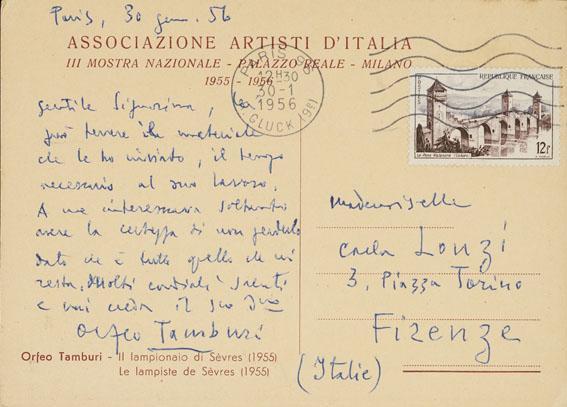 Paris, 30 genn. 56
ASSOCIAZIONE ARTISTI D'ITALIA
III MOSTRA NAZIONALE - PALAZZO REALE - MILANO
1955 - 1956
PARIS 98
12H30
30-1
1956
R. GLUCK (9e)
REPUBLIQUE FRANÇAISE
Le Pont Valentré (Cahors)
12f
POSTES
gentile Signorina, la
può tenere il materiale
che le ho inviato, il tempo
necessario al suo lavoro.
A me interessava soltanto
avere la certezza di non perderlo
dato che è tutto quello che mi
resta. Molti cordiali saluti
e mi creda il suo
Orfeo Tamburi
Orfeo Tamburi - Il lampionaio di Sèvres (1955)
Le lampiste de Sèvres (1955)
Mademoiselle
Carla Lonzi
3, Piazza Torino
Firenze
(Italie)